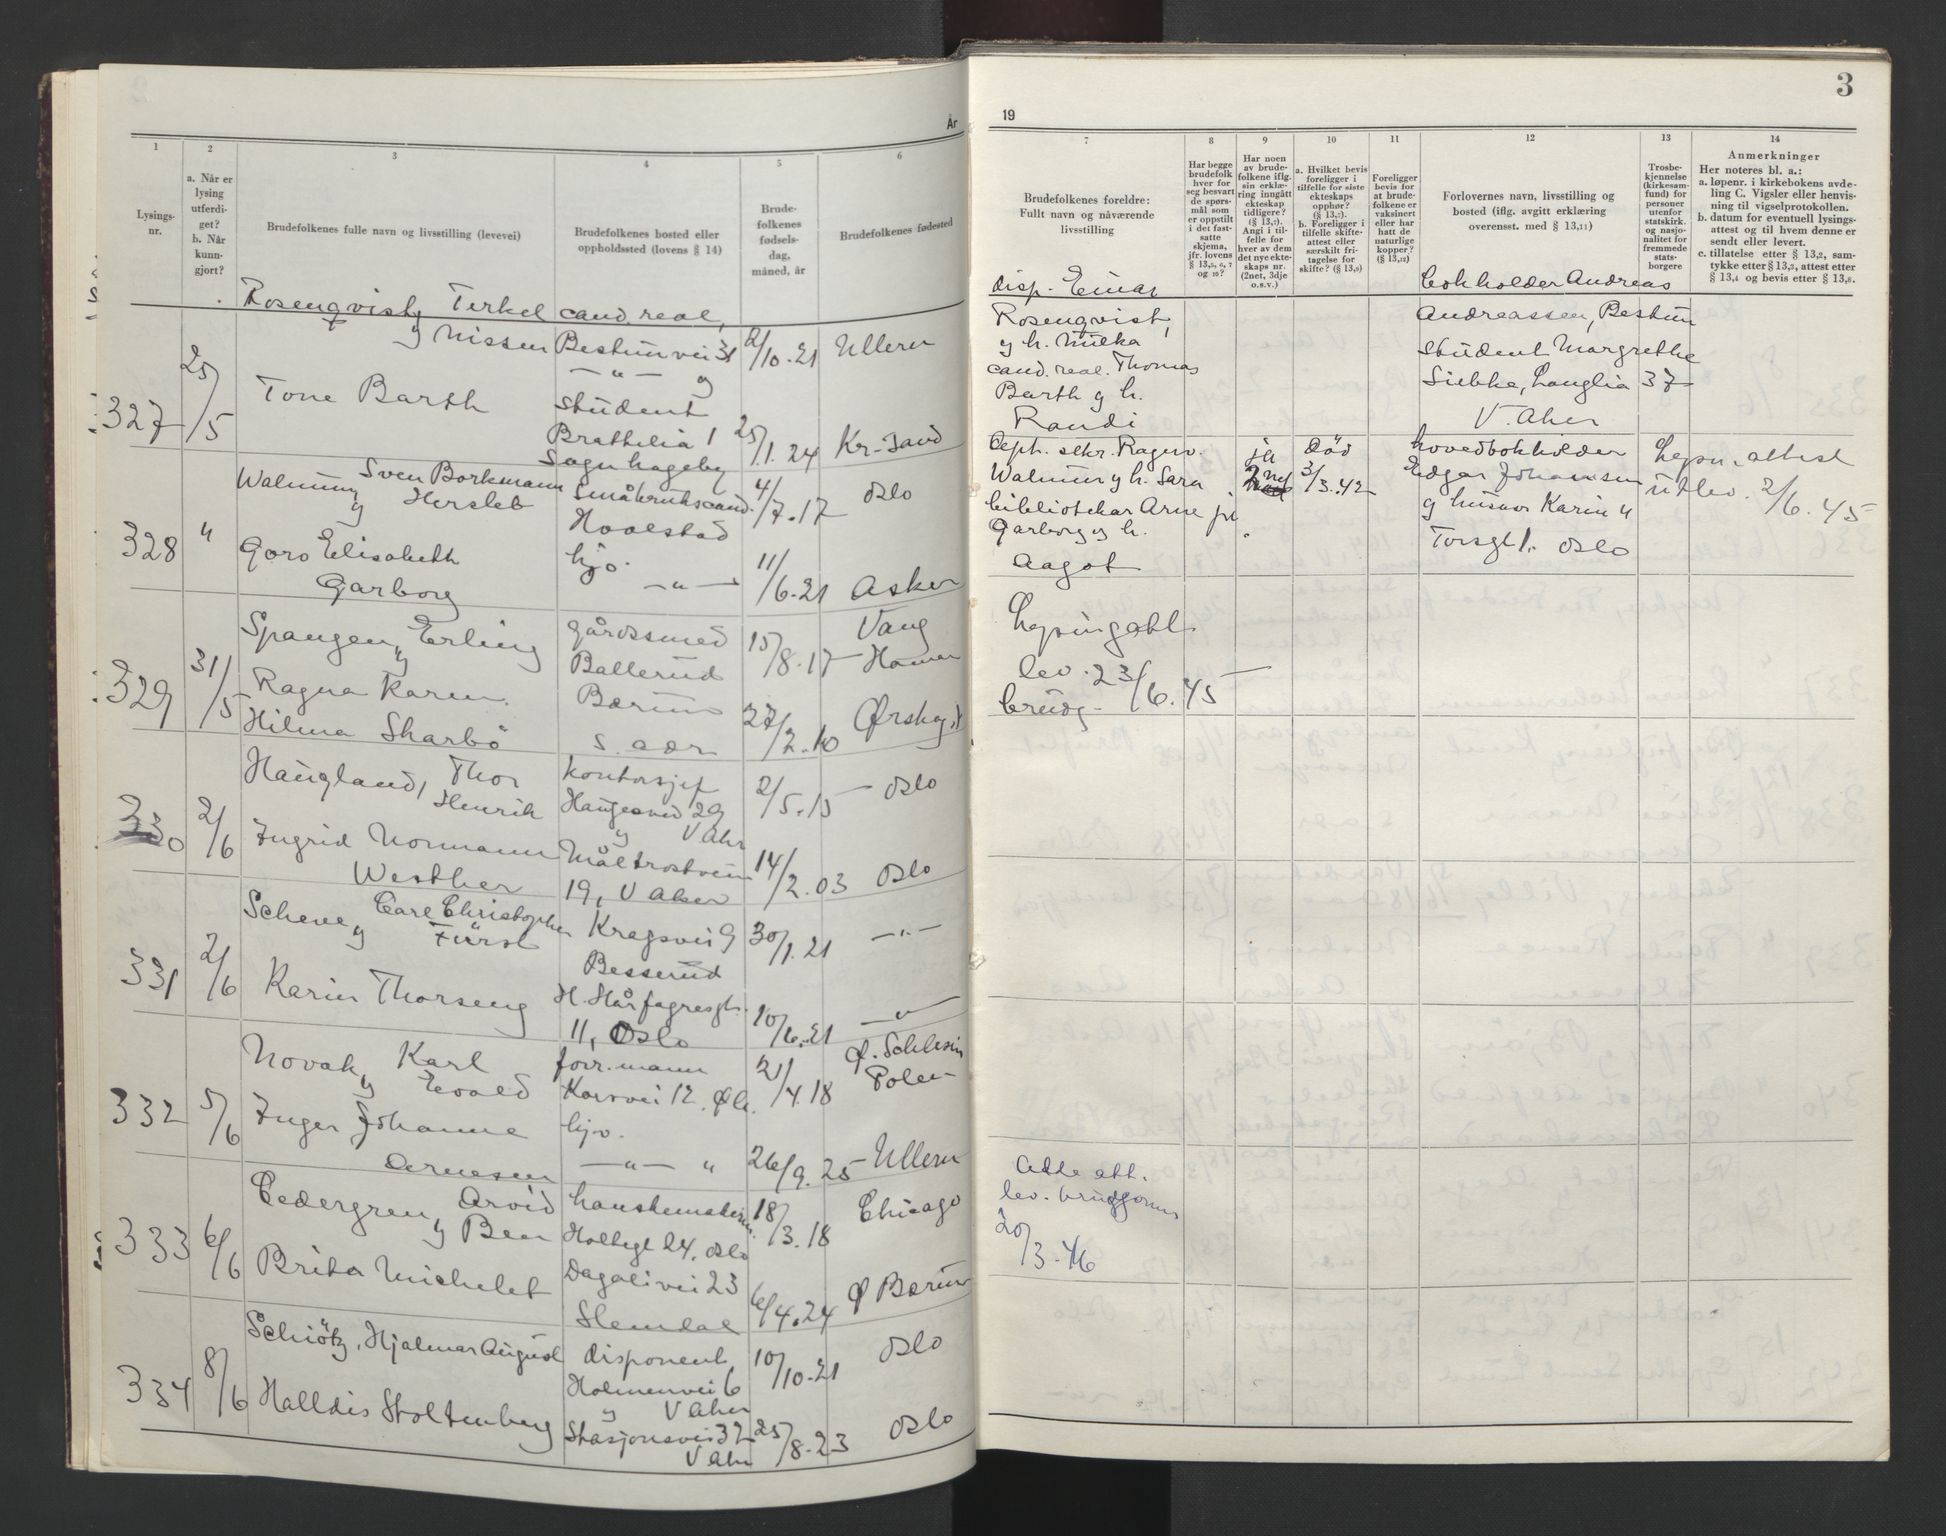 År
1 2 3 4 5 6
Lysings-
nr.
a. Når er
lysing
utferdi-
get?
b. Når
kunn-
gjort?
Brudefolkenes fulle navn og livsstilling (levevei)
Brudefolkenes bosted eller
oppholdssted (lovens § 14)
Brude-
folkenes
fødsels-
dag,
måned, år
Brudefolkenes fødested
Rosenqvist, Terkel cand. real,
327 25/5 y Nissen Bestumvei 31 2/10.21 Ullern
— " — y
Tone Barth student
Brattelia 1 25/1.24 Kr-sand
Sogn hageby
328 " Walnum, Sven Borkmann småbrukscand. 4/7.17 Oslo
y Hersleb Hvalstad
Goro Elisabeth hjv. 11/6.21 Asker
Garborg — " —
329 31/5 Spangen, Erling gårdssmed 15/8.17 Vang
y Ballerud Hamar
Ragna Karen Bærum 27/2.10 Ørskog
Hilma Skarbö s. adr
330 2/6 Haugland, Thor kontorsjef 2/5.15 Oslo
Henrik Haugesvei 29
y V Aker
Ingrid Normann Måltrostveien 14/2.03 Oslo
Westher 19, V Aker
331 2/6 Scheve, Carl Christopher Kragsvei 9 30/1.21 — " —
y Fürst Besserud
Karin Thorseng H. Hårfagresgt. 10/6.21 — " —
11, Oslo
332 5/6 Novak, Karl forr.mann 21/4.18 Ø. Schlesien
y Evald Korsvei 12, Polen
Inger Johanne hjv.
Arnesen — " — " 26/9.25 Ullern
333 6/6 Cedergren, Arvid 18/3.18 Chicago
y Ben Holtegt 24, Oslo
Brita Michelet Dagalivei 23 6/4.24 Ø Bærum
Slemdal
334 8/6 Schiötz, Hjalmar August disponent 10/10.21 Oslo
Holmenvei 6
y V Aker
Halldis Stoltenberg Stasjonsvei 32 25/8.23 Oslo
V Aker
3
19
7 8 9 10 11 12 13 14
Brudefolkenes foreldre:
Fullt navn og nåværende
livsstilling
Har begge
brudefolk
hver for
seg besvart
de spørs-
mål som
er oppstilt
i det fast-
satte
skjema,
jfr. lovens
§ 13,5, 6, 7
og 10?
Har noen
av brude-
folkene iflg.
sin erklæ-
ring inngått
ekteskap
tidligere?
(§ 13,7).
Angi i til-
felle for
hver av dem
det nye ekte-
skaps nr.
(2net, 3dje
o.s.v.)
a. Hvilket bevis
foreligger i
tilfelle for siste
ekteskaps
opphør?
(§ 13,7).
b. Foreligger i
tilfelle skifte-
attest eller
særskilt fri-
tagelse for
skifte? (§ 13,9)
Foreligger
bevis for
at brude-
folkene er
vaksinert
eller har
hatt de
naturlige
kopper?
(§ 13,12)
Forlovernes navn, livsstilling og
bosted (iflg. avgitt erklæring
overensst. med § 13,11)
Trosbe-
kjennelse
(kirkesam-
fund) for
personer
utenfor
statskirk.
og nasjo-
nalitet for
fremmede
stats-
borgere
Anmerkninger
Her noteres bl. a.:
a. løpenr. i kirkebokens avde-
ling C. Vigsler eller henvis-
ning til vigselprotokollen.
b. datum for eventuell lysings-
attest og til hvem denne er
sendt eller levert.
c. tillatelse etter § 13,2, sam-
tykke etter § 13,3, attest etter
§ 13,4 og bevis etter § 13,8.
disp. Einar
Rosenqvist,
y h. Milka
cand. real. Thomas
Barth y h.
Randi
bokholder Andreas
Andreassen, Bestum
student Margrethe
Siebke, Langlia 37
V. Aker
sekr. Ragnv.
Walnum y h. Sara
bibliotekar Arne
Garborg y h.
Aagot
ja
2net
Död
3/3.42
hovedbokholder
Edgar Johansen
y husmor Karin
Torsgt 1. Oslo
Lysn. attest
utlev. 2/6.45
Lysingatt
lev. 23/6.45
brudg.
Atte att.
lev. brudgommen
20/3-46